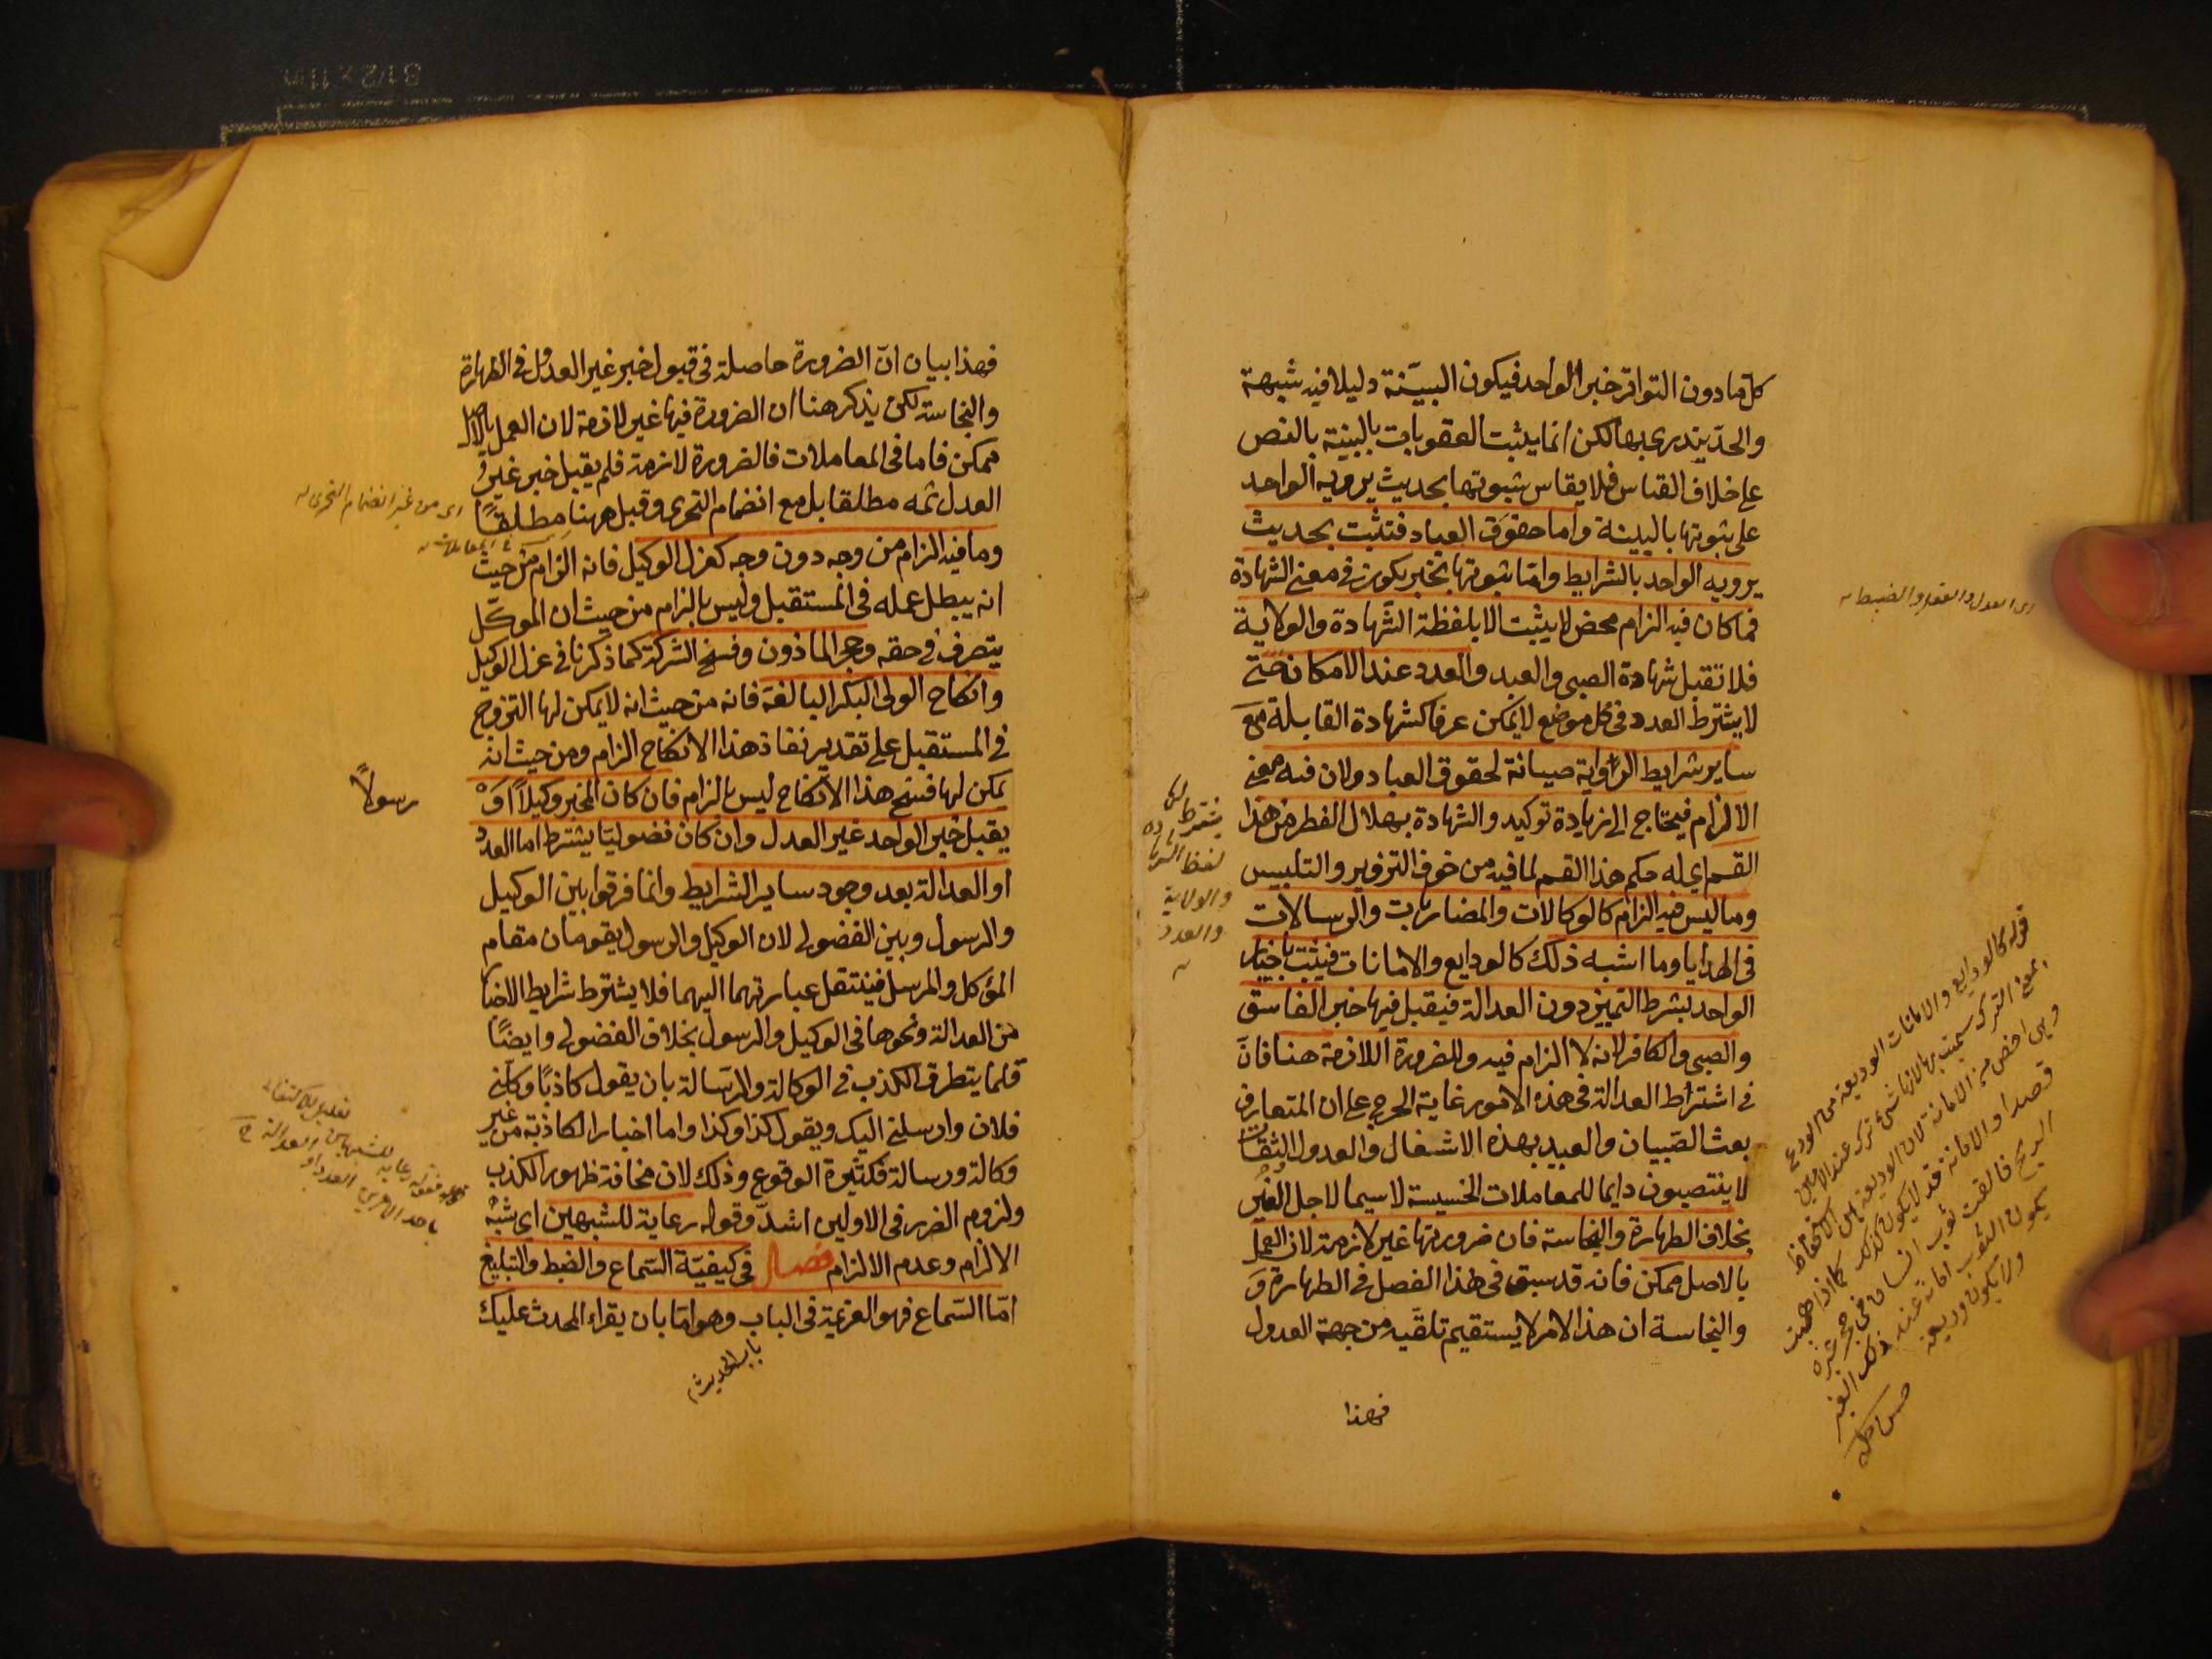 كل ما دون التواتر خبر الواحد فيكون البينة دليلا فيه شبهة
والحد يندرى بها لكن انما يثبت العقوبات بالبينة بالنص
على خلاف القياس فلا يقاس ثبوتها بحديث يرويه الواحد
على ثبوتها بالبينة واما حقوق العباد فتثبت بحديث
يرويه الواحد بالشرايط واما ثبوتها بخبر يكون في معنى الشهادة
فما كان فيه الزام محض لا يثبت الا بلفظة الشهادة والولاية
فلا تقبل شهادة الصبى والعبد والعدد عند الامكان حتى
لا يشترط العدد فى كل موضع لا يمكن عرفا كشهادة القابلة مع
ساير شرايط الرواية صيانة لحقوق العباد ولان فيه معنى
الالزام فيحتاج الى زيادة توكيد والشهادة بهلال الفطر من هذا
القسم اى له حكم هذا القسم لما فيه من خوف التزوير والتلبيس
وما ليس فيه الزام كالوكالات والمضاربات والرسالات
فى الهدايا وما اشبه ذلك كالودايع والامانات فيثبت باخبار
الواحد بشرط التمييز دون العدالة فيقبل فيها خبر الفاسق
والصبى والكافر لانه لا الزام فيه وللضرورة اللازمة هنا فان
فى اشتراط العدالة فى هذه الامور غاية الحرج على ان المتعارف
بعث الصبيان والعبيد بهذه الاشغال والعدول الثقات
لا ينتصبون دايما للمعاملات الخسيسة لا سيما لاجل الغير
بخلاف الطهارة والنجاسة فان ضرورتها غير لازمة لان العمل
بالاصل ممكن فانه قد سبق فى هذا الفصل فى الطهارة و
والنجاسة ان هذا الامر لا يستقيم تلقيه من جهة العدول
فهذا
يشترط
لفظ الشهادة
والولاية
والعدد
اى العدل والعقل والضبط
قوله كالودايع والامانات الوديعة من الودع
بمعنى الترك سميت بها لانها شئ ترك عند الامين
وهى اخص من الامانة لان الوديعة هى الاستحفاظ
قصدا والامانة قد لا يكون كذلك كما اذا هبت
الريح فالقت ثوب انسان فى حجر غيره
يكون الثوب امانة عند ذلك الغير
ولا يكون وديعة
فهذا بيان ان الضرورة حاصلة فى قبول خبر غير العدل فى الطهارة
والنجاسة لكن يذكر هنا ان الضرورة فيها غير لازمة لان العمل بالاصل
ممكن فاما فى المعاملات فالضرورة لازمة فلم يقبل خبر غير
العدل ثمه مطلقا بل مع انضمام التحرى وقبل ههنا مطلقا
وما فيه الزام من وجه دون وجه كعزل الوكيل فانه الزام من حيث
انه يبطل عمله فى المستقبل وليس بالزام من حيث ان الموكل
يتصرف فى حقه وحجر الماذون وفسخ الشركة كما ذكرنا فى عزل الوكيل
وانكاح الولى البكر البالغة فانه من حيث انه لا يمكن لها التزوج
فى المستقبل على تقدير نفاذ هذا الانكاح الزام ومن حيث انه
يمكن لها فسخ هذا الانكاح ليس بالزام فان كان المخبر وكيلا او
يقبل خبر الواحد غير العدل وان كان فضوليا يشترط اما العدد
او العدالة بعد وجود ساير الشرايط وانما فرقوا بين الوكيل
والرسول وبين الفضولى لان الوكيل والرسول يقومان مقام
المؤكل والمرسل فينتقل عبارتهما اليهما فلا يشترط شرايط الاخبار
من العدالة ونحوها فى الوكيل والرسول بخلاف الفضولى وايضا
قلما يتطرق الكذب فى الوكالة والرسالة بان يقول كاذبا وكلنى
فلان وارسلنى اليك ويقول كذا وكذا واما اخبار الكاذبة من غير
وكالة ورسالة فكثيرة الوقوع وذلك لان مخافة ظهور الكذب
ولزوم الضرر فى الاولين اشد وقوله رعاية للشبهين اى شبه
الالزام وعدم الالزام فصل فى كيفية السماع والضبط والتبليغ
اما السماع فهو العزيمة فى الباب وهو اما بان يقراء المحدث عليك
باب الحديث
اى من غير انضمام التحرى
رسولا
تعليل للاكتفاء
باحد الامرين العدد او العدالة